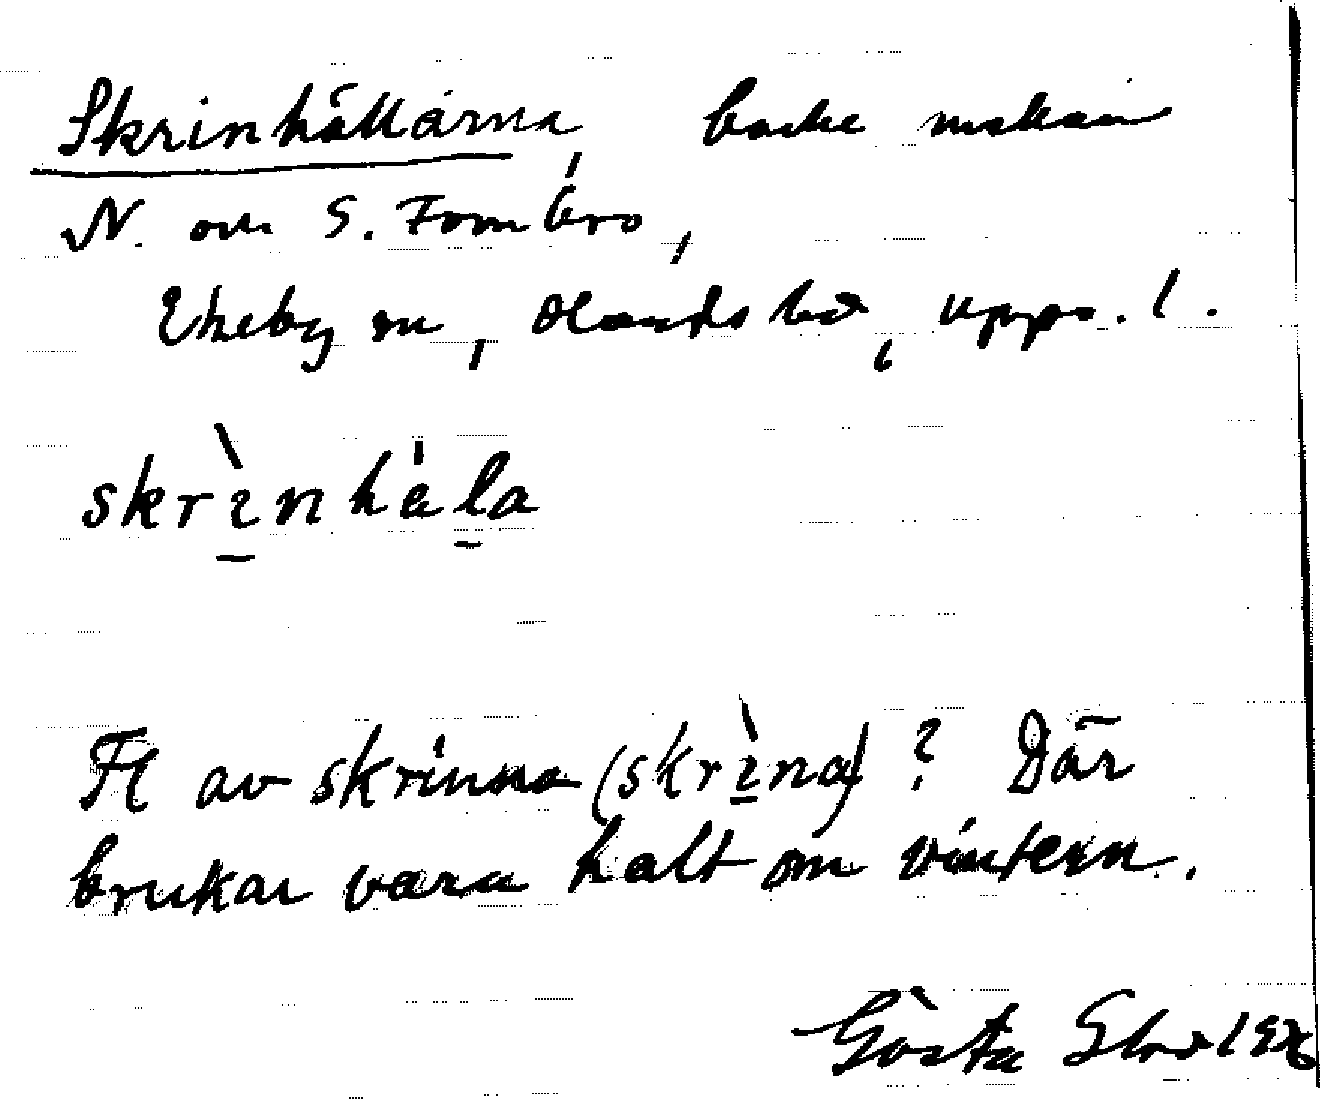 Skrinhällarna, backe mellan
N. och S. Tombro,
Ekeby sn, Olands hd, Upps. l.
skrìnhäla
Fl av skrinna (skrìna)? Där
brukar vara halt om vintern.
Gösta